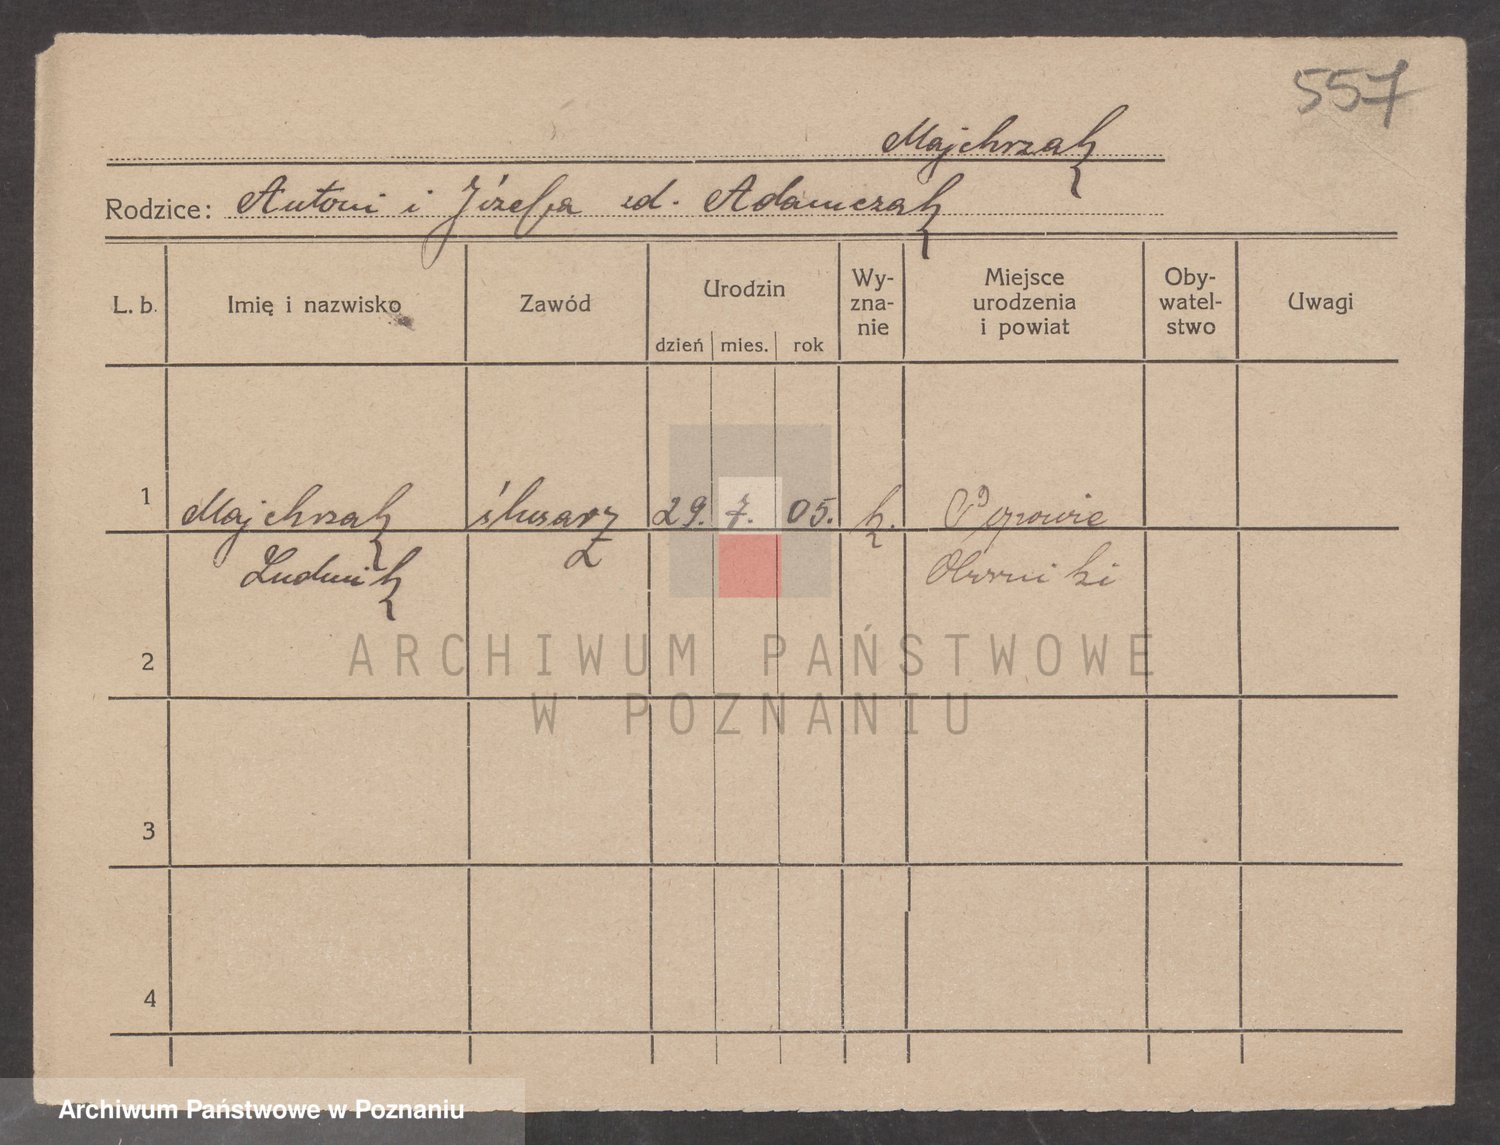 557
Majchrzak
Rodzice: Antoni i Józefa zd. Adamczak
L. b. Imię i nazwisko Zawód Urodzin dzień mies. rok Wy-
zna-
nie Miejsce
urodzenia
i powiat Oby-
watel-
stwo Uwagi
1 Majchrzak ślusarz 29. 7. 05. k.
Ludwik Oborniki
2
3
4
ARCHIWUM PAŃSTWOWE
W POZNANIU
Archiwum Państwowe w Poznaniu